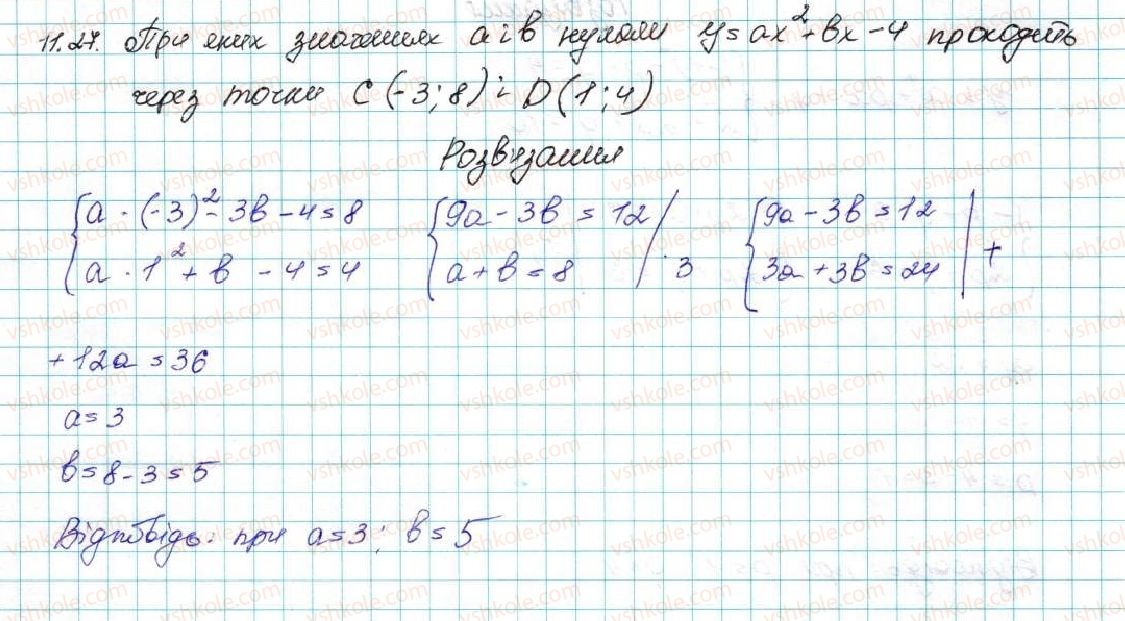 11.27. При яких значеннях a і b нулями y = ax² + bx - 4 проходить
через точки C (-3; 8) і D (1; 4)
Розв'язання
{ a · (-3)² - 3b - 4 = 8 { 9a - 3b = 12 / { 9a - 3b = 12 |
{ a · 1² + b - 4 = 4 { a + b = 8 / · 3 { 3a + 3b = 24 | +
+ 12a = 36
a = 3
b = 8 - 3 = 5
Відповідь: при a = 3; b = 5